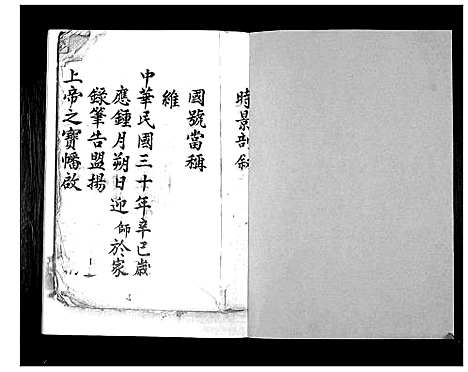 時景剖叙
國號當稱
維
中華民國三十年辛巳歲
應鍾月朔日迎 師於家
錄筆告盟揚
上帝之寶幡啟